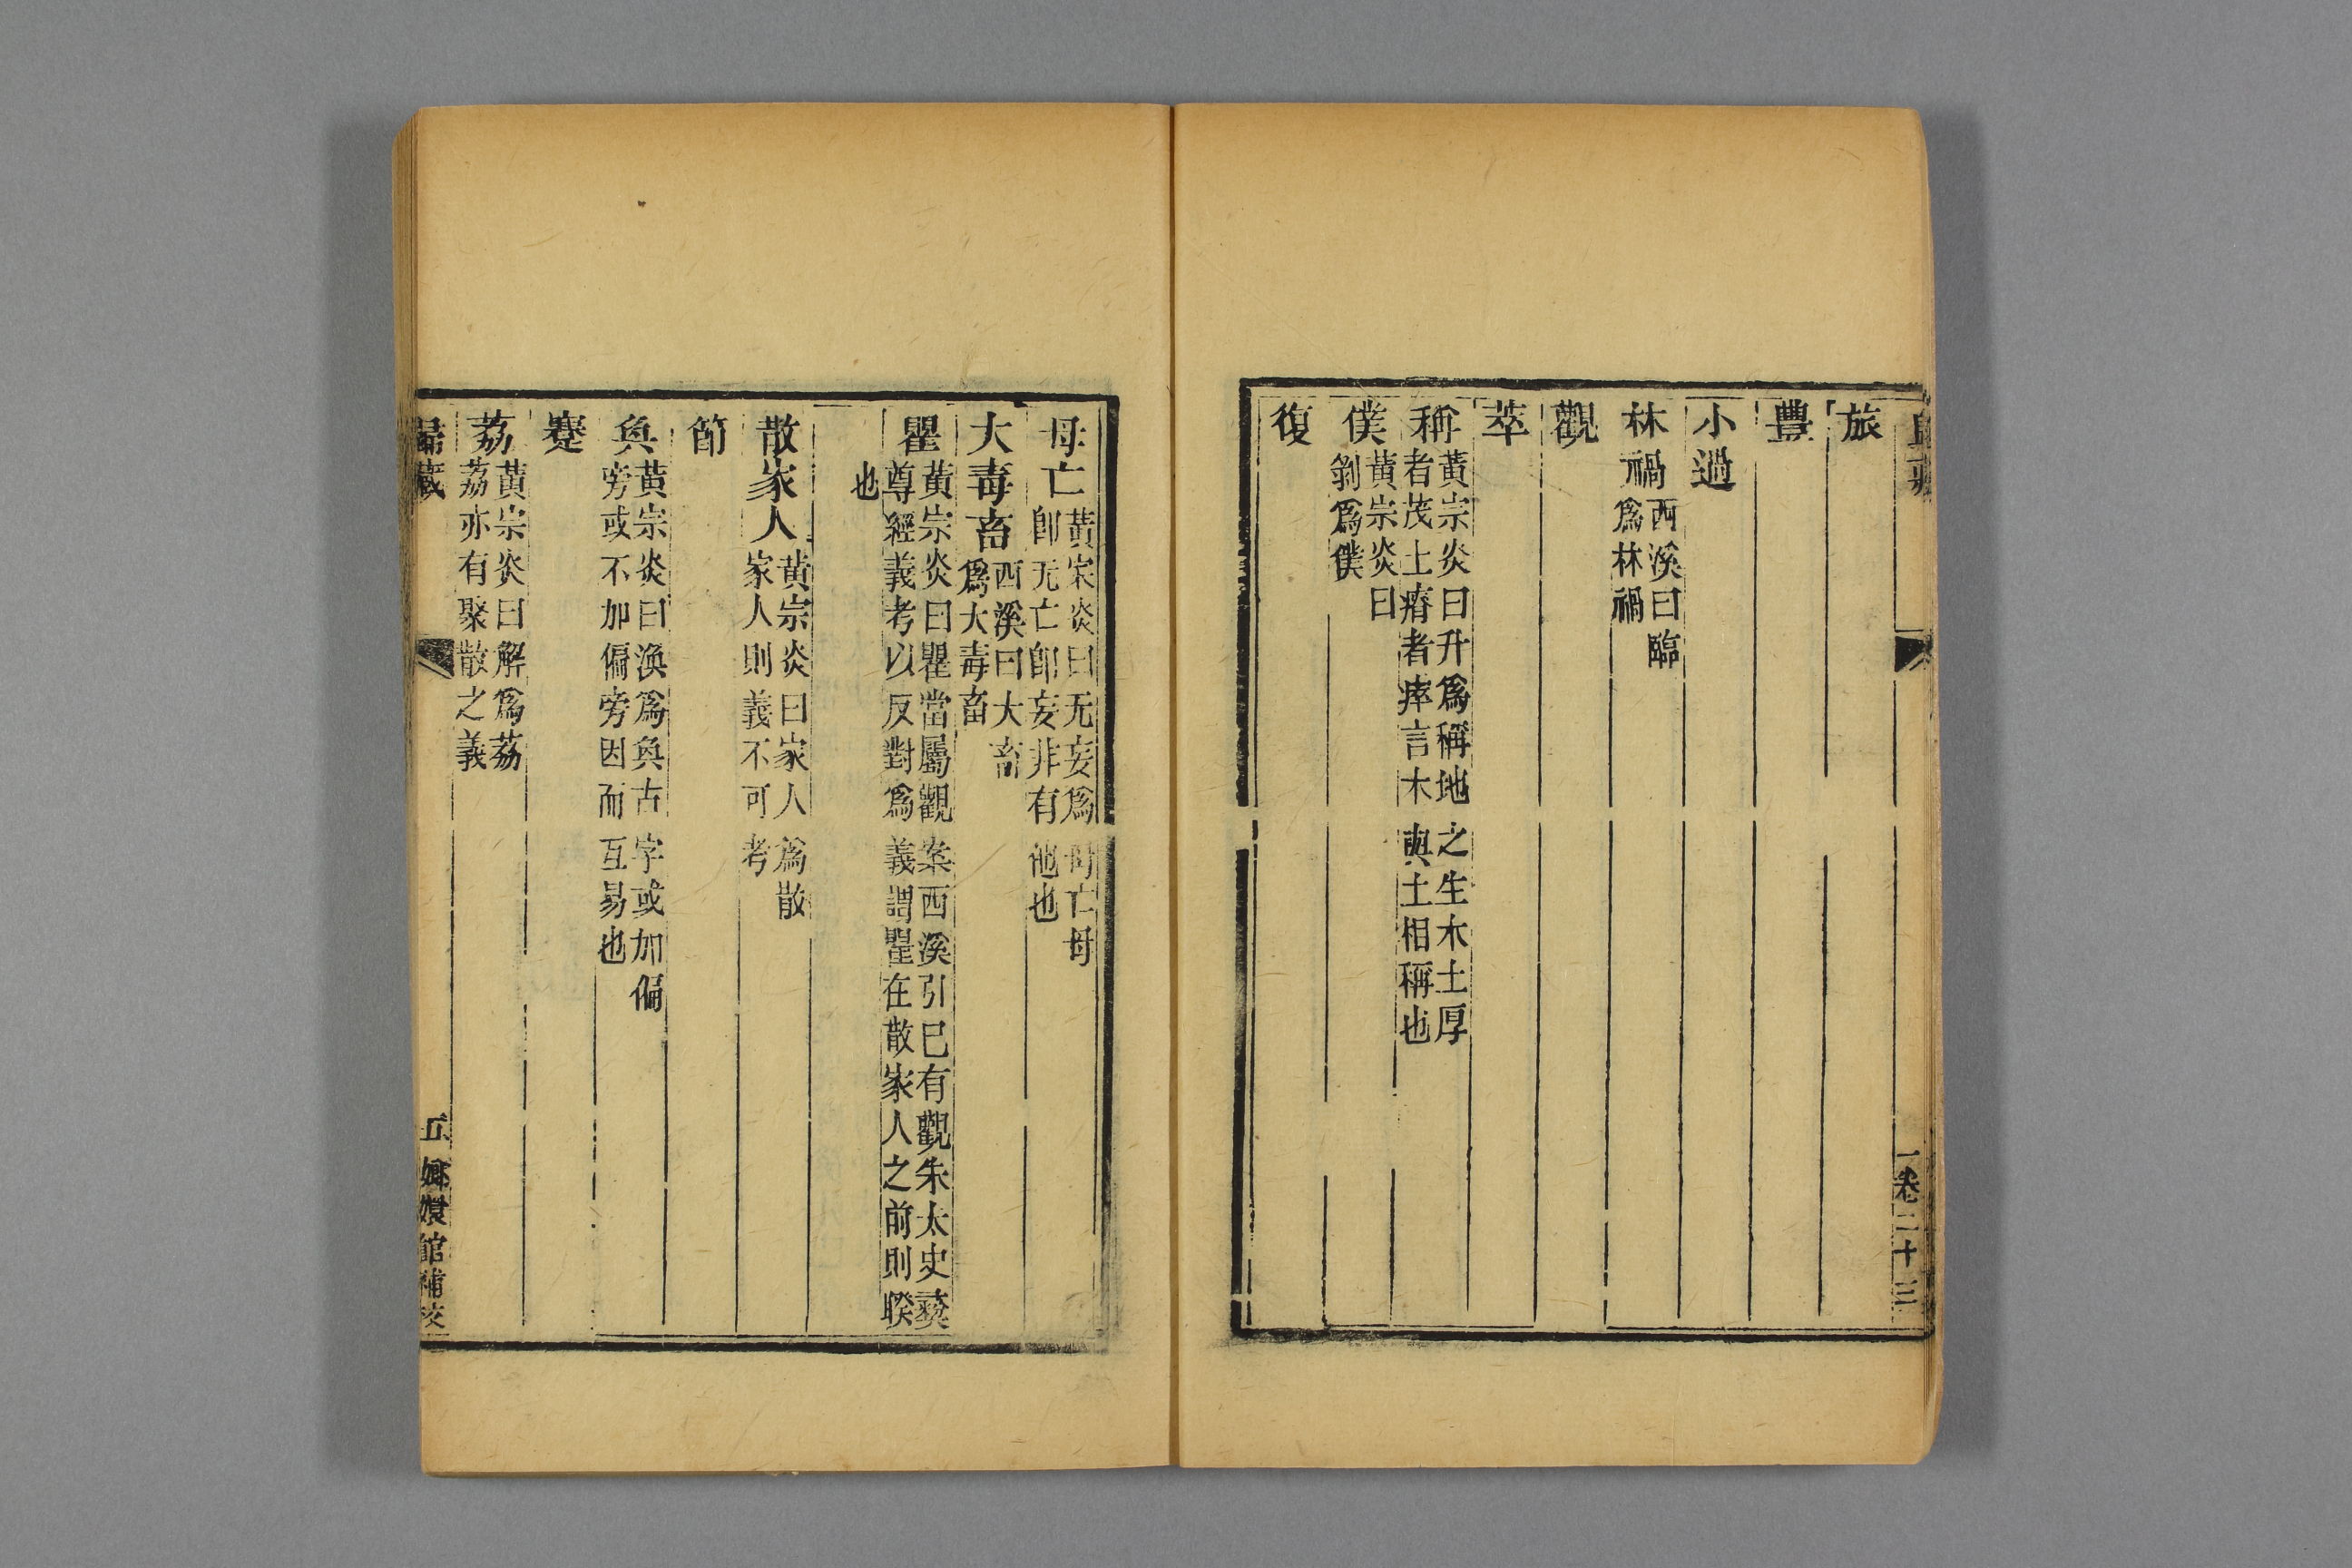 卷二十三
旅
豐
小過
林禍 西溪曰臨
爲林禍
觀
萃
稱 黃宗炎曰升爲稱地之生木土厚
者茂土瘠者瘁言木與土相稱也
僕 黃宗炎曰
剝爲僕
復
母亡 黃宗炎曰无妄爲母亡母
卽无亡卽妄非有他也
大毒畜 西溪曰大畜
爲大毒畜
瞿 黃宗炎曰瞿當屬觀案西溪引已有觀朱太史彝
尊經義考以反對爲義謂瞿在散家人之前則睽
也
散家人 黃宗炎曰家人爲散
家人則義不可考
節
奐 黃宗炎曰渙爲奐古字或加偏
旁或不加偏旁因而互易也
蹇
荔 黃宗炎曰解爲荔
荔亦有聚散之義
歸藏
五
嫏嬛館補校